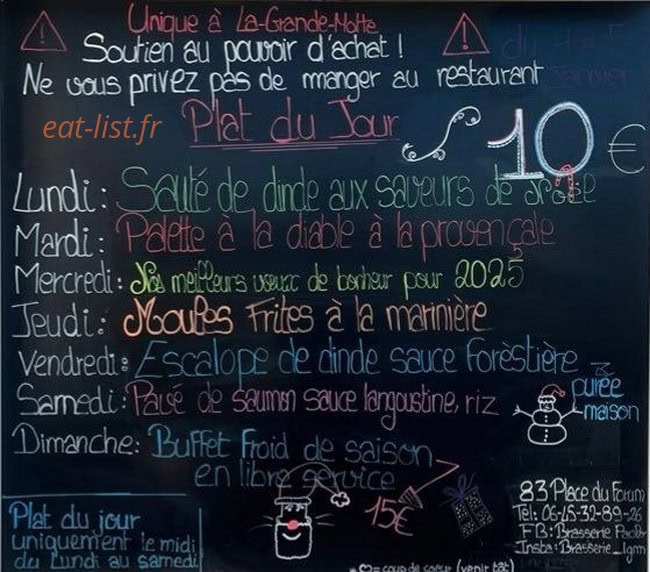 Unique à La-Grande-Motte
Soutien au pouvoir d'achat !
Ne vous privez pas de manger au restaurant
eat-list.fr
Plat du Jour 10 €
Lundi : Sauté de dinde aux saveurs de
Mardi : Palette à la diable à la provençale
Mercredi : Nos meilleurs vœux de bonheur pour 2025
Jeudi : Moules Frites à la marinière
Vendredi : Escalope de dinde sauce forèstière
purée
maison
Samedi : Pavé de saumon sauce langoustine, riz
Dimanche : Buffet froid de saison
en libre service
15€
Plat du jour
uniquement le midi
du Lundi au samedi
83 Place du Forum
Tél: 06-45-32-89-26
FB: Brasserie
Insta: Brasserie_lgm
= coup de coeur (venir tôt)